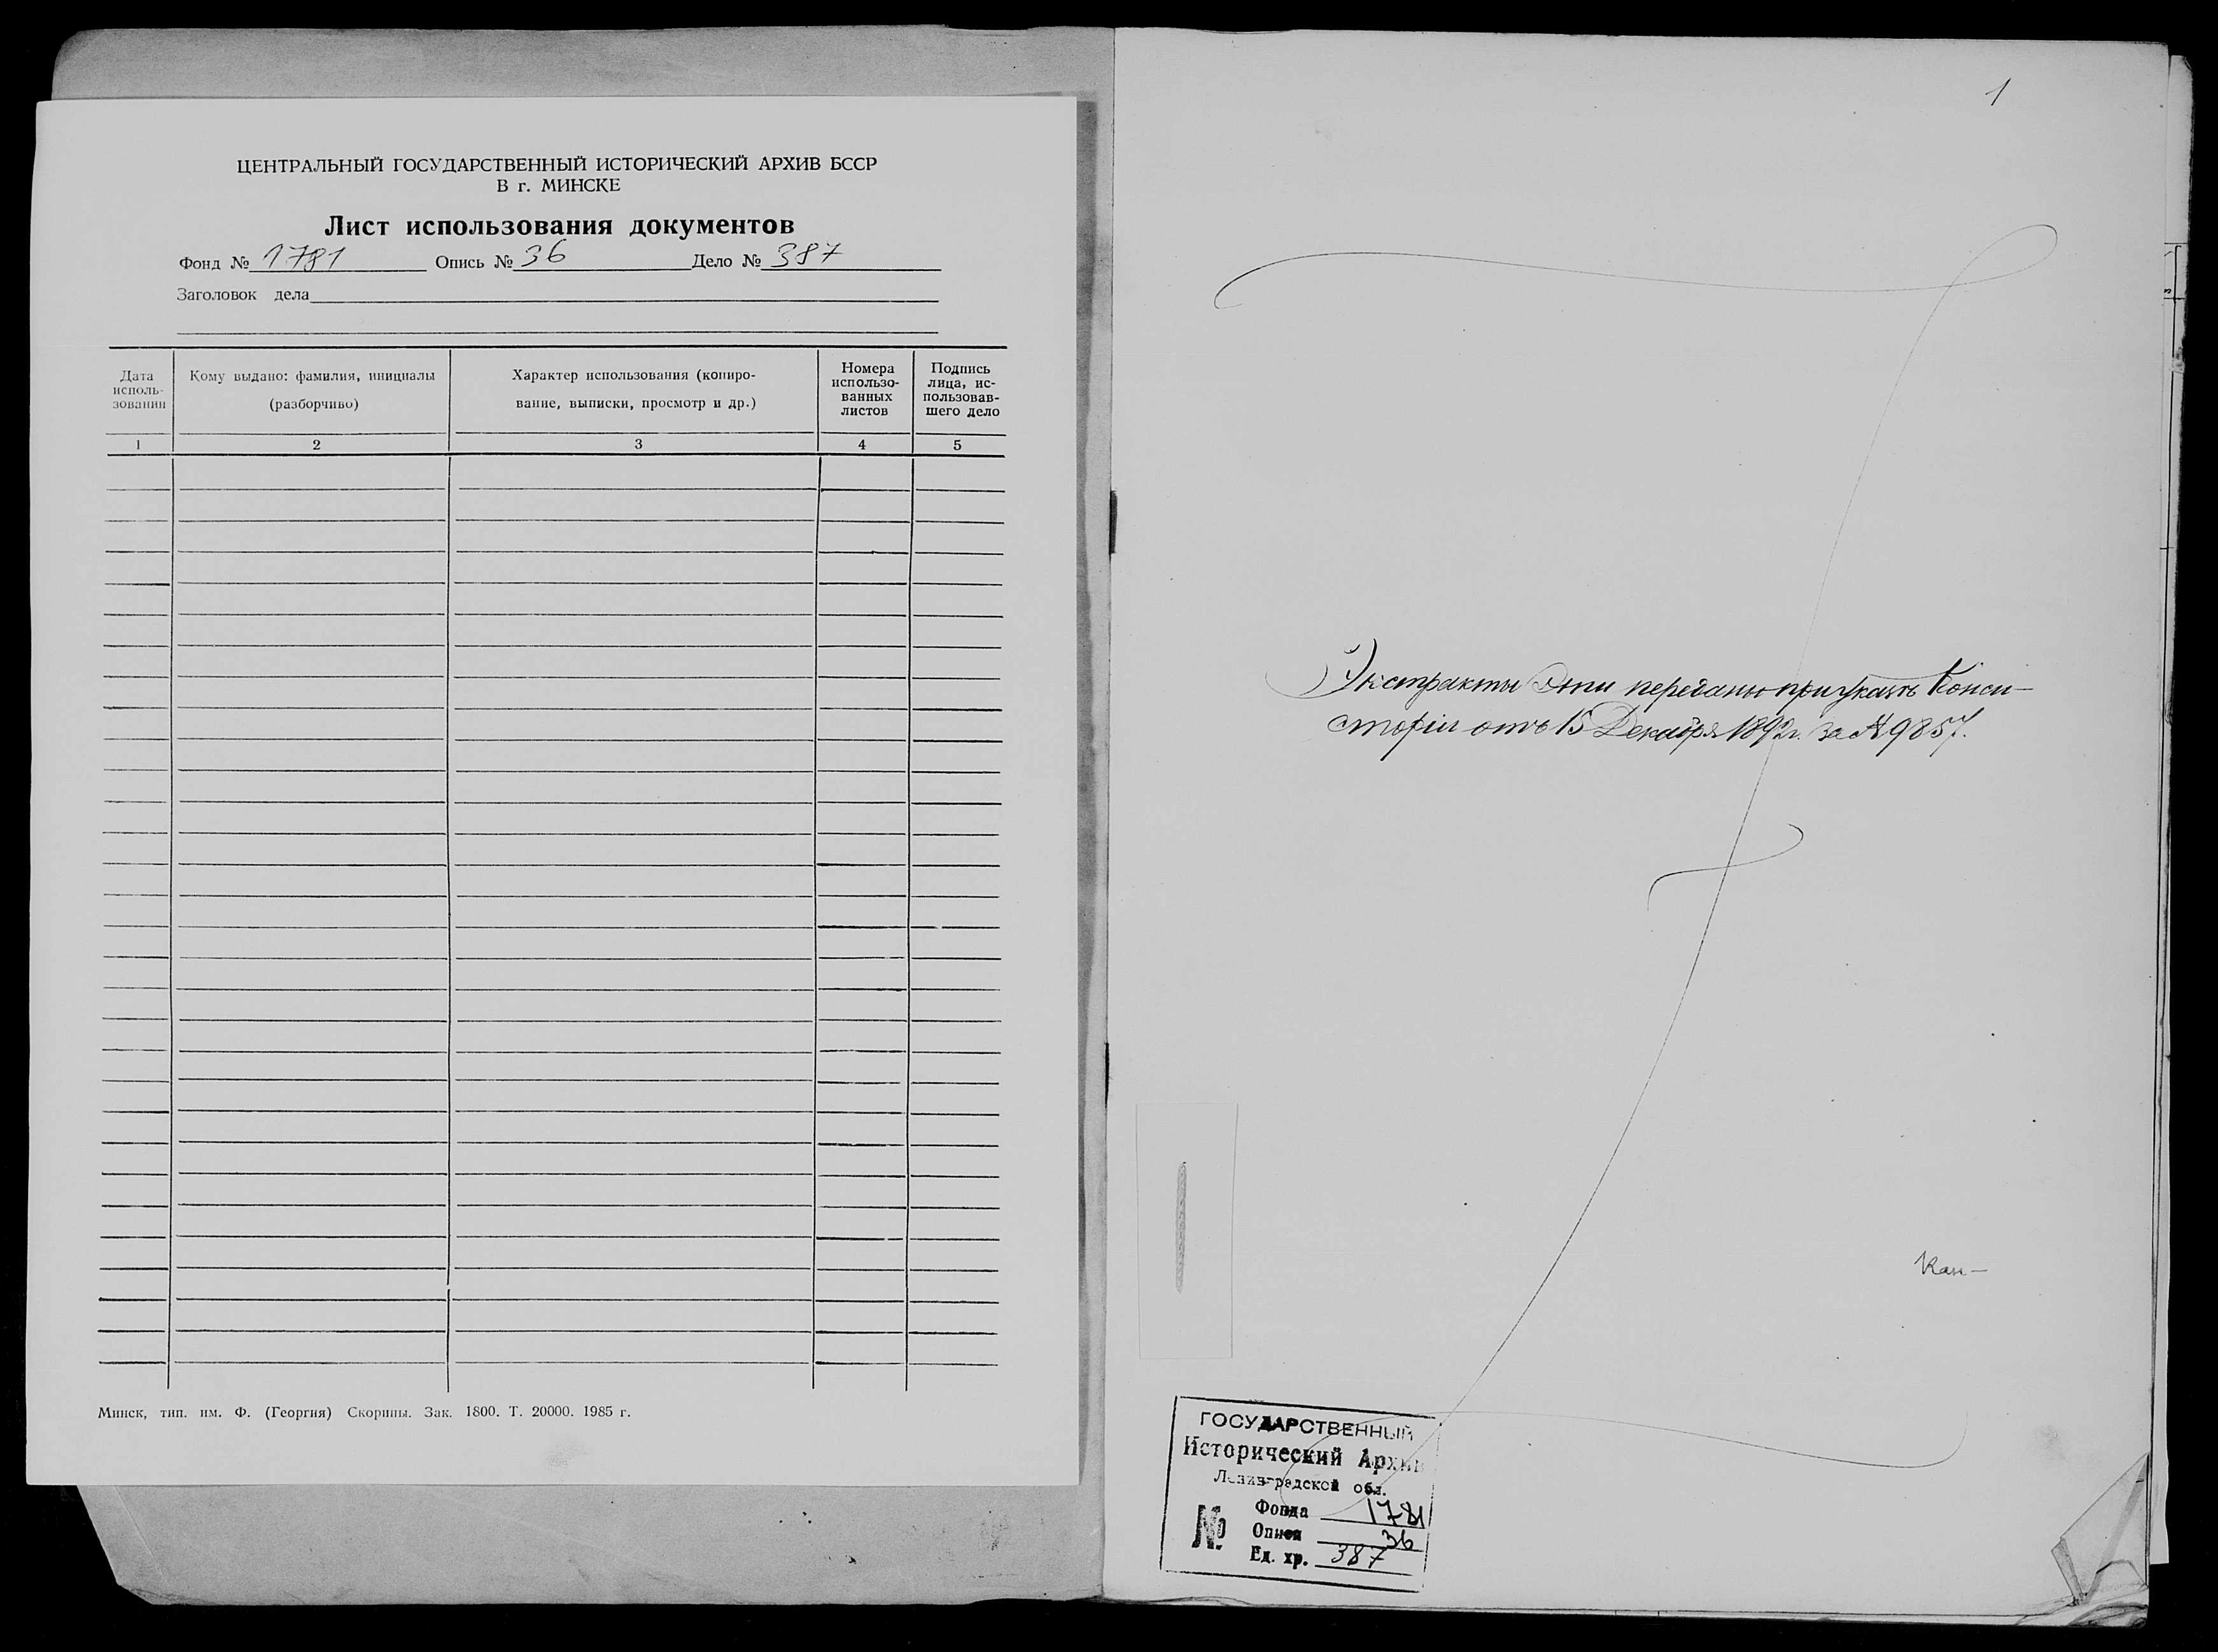 ЦЕНТРАЛЬНЫЙ ГОСУДАРСТВЕННЫЙ ИСТОРИЧЕСКИЙ АРХИВ БССР
В г. МИНСКЕ
Лист использования документов
Фонд № 1781 Опись № 36 Дело № 387
Заголовок дела
Дата
исполь-
зования
Кому выдано: фамилия, инициалы
(разборчиво)
Характер использования (копиро-
вание, выписки, просмотр и др.)
Номера
использо-
ванных
листов
Подпись
лица, ис-
пользовав-
шего дело
1 2 3 4 5
Минск, тип. им. Ф. (Георгия) Скорины. Зак. 1800. Т. 20000. 1985 г.
1
Экстракты эти переданы при указѣ Конси-
сторіи отъ 15 Декабря 1892 г. за № 9857.
Кан-
ГОСУДАРСТВЕННЫЙ
Исторический Архив
Ленинградской обл.
№
Фонда 1781
Описи 36
Ед. хр. 387